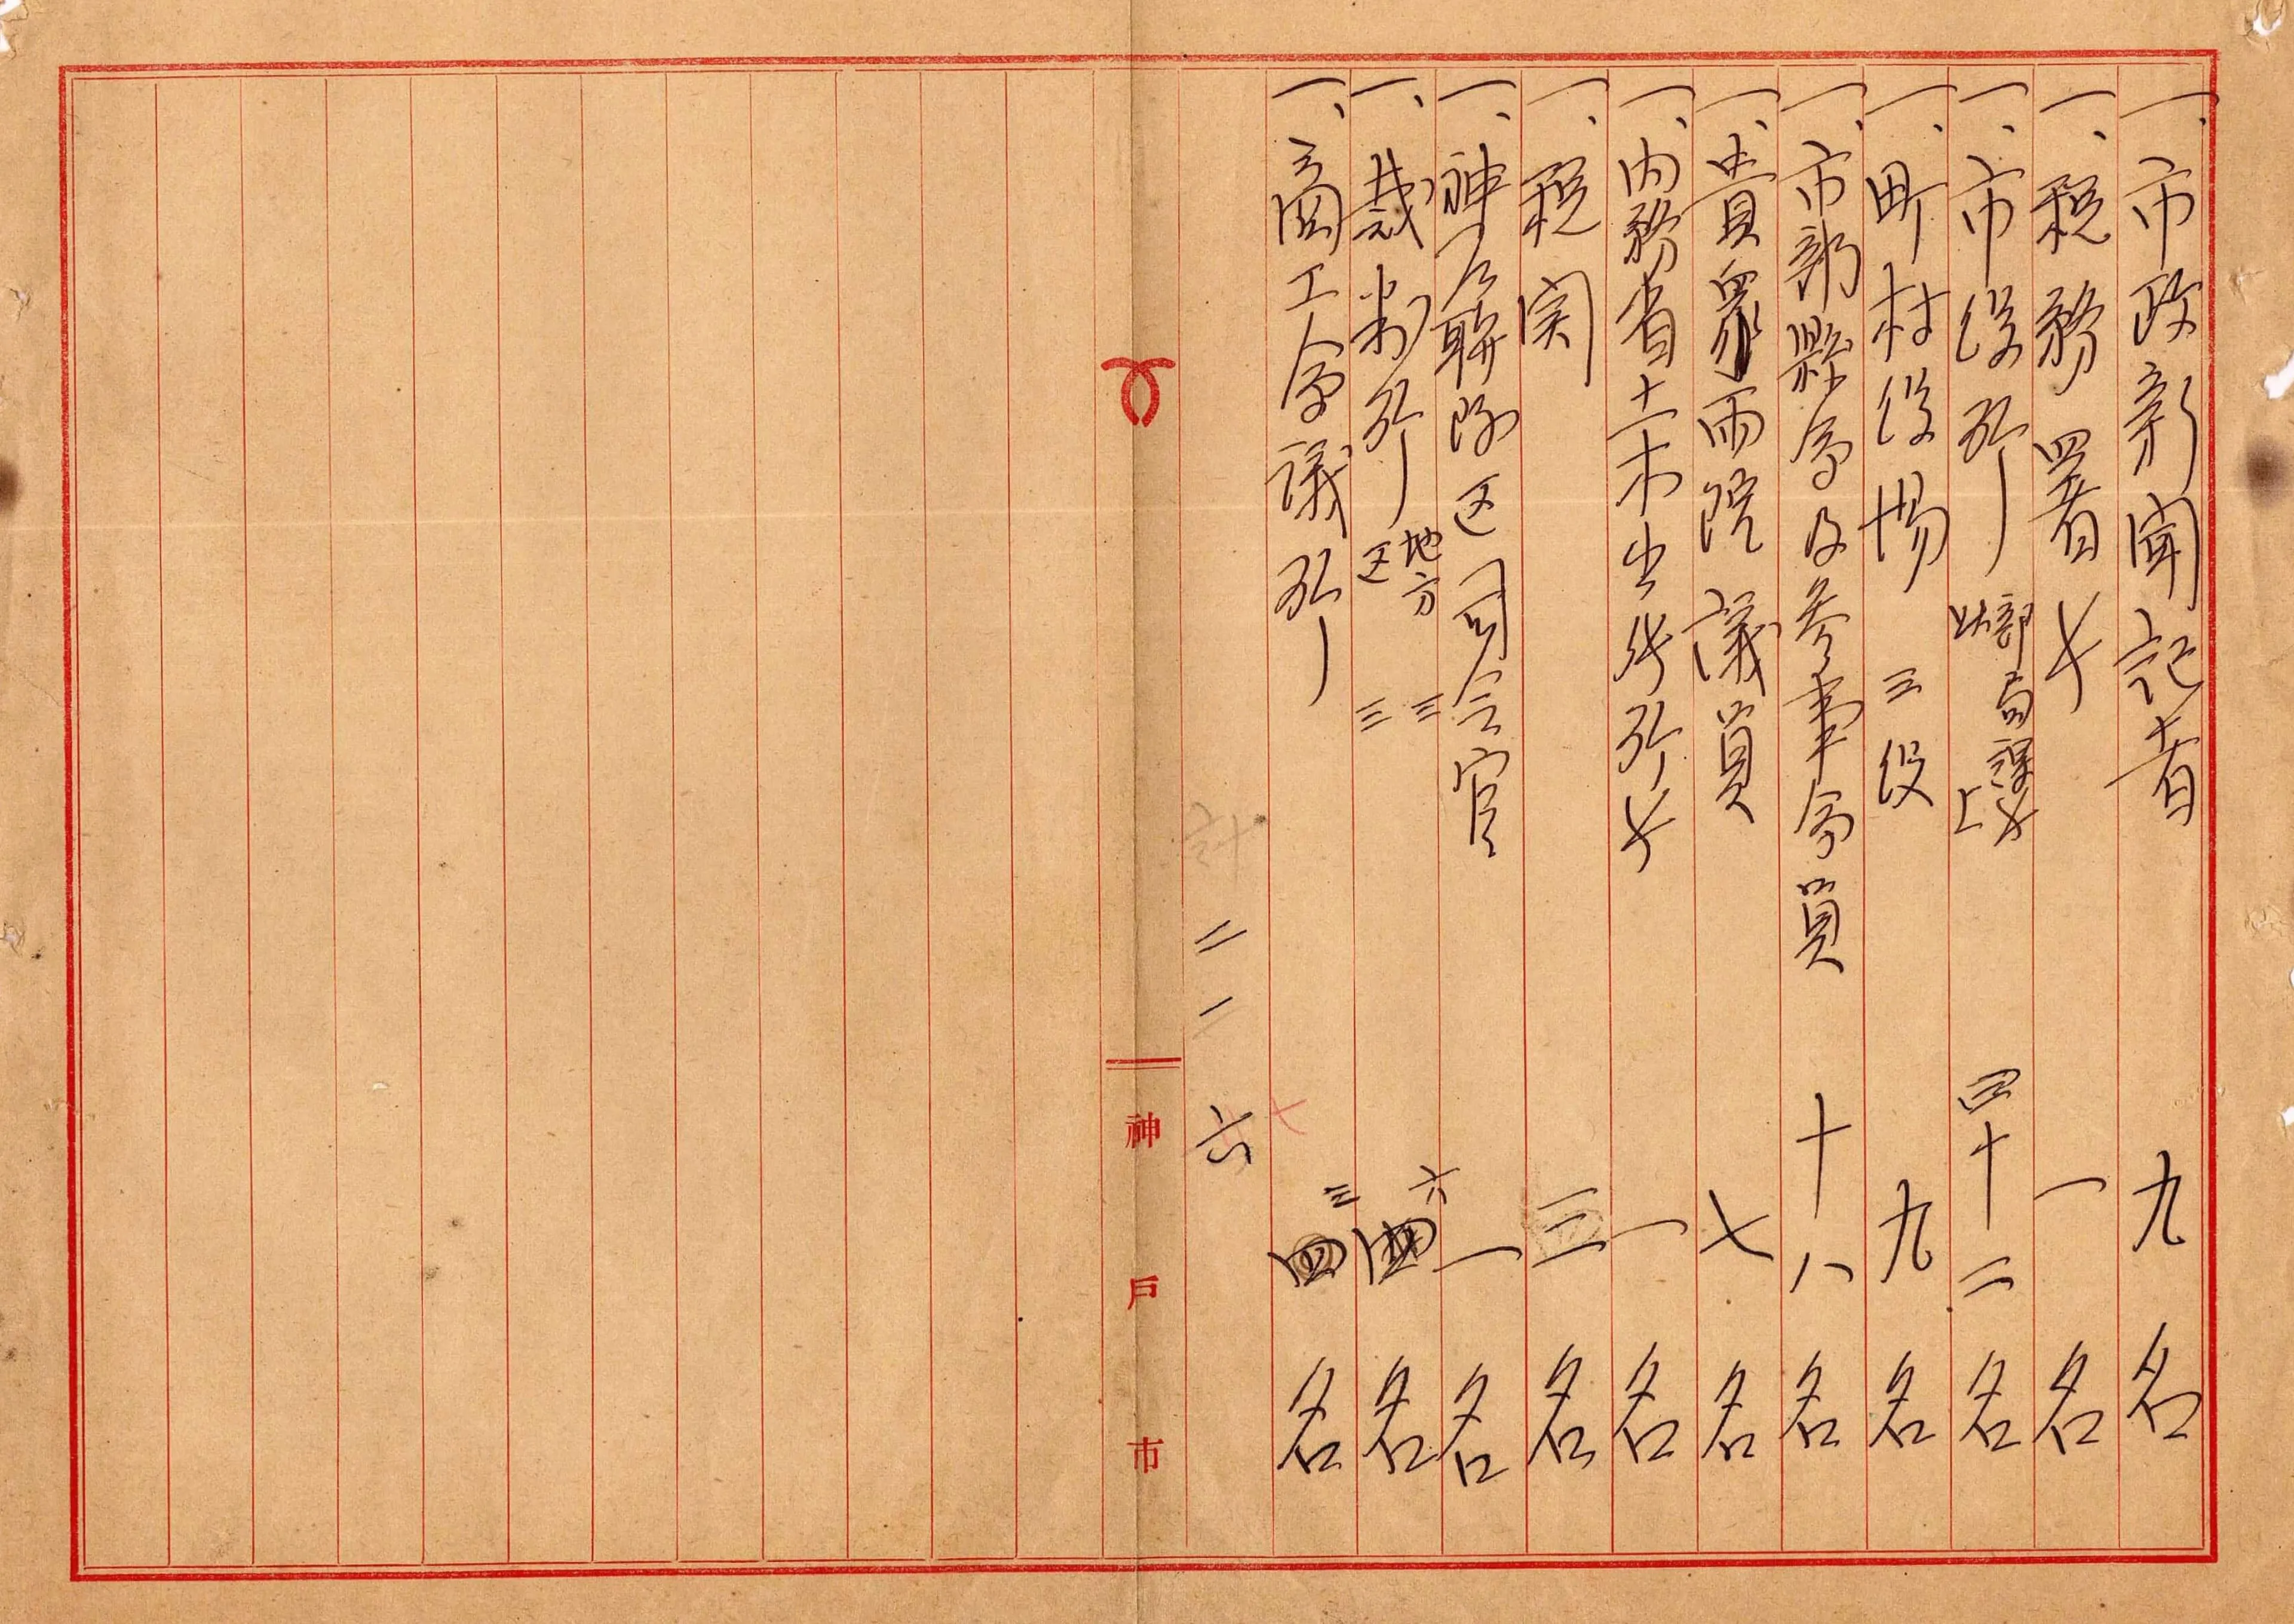 一、市政新聞記者 九名
一、税務署長 一名
一、市役所 部局課長以上 四十二名
一、町村役場 三役 九名
一、市部縣会及参事会員 十八名
一、貴衆両院議員 七名
一、内務省土木出張所長 一名
一、税関 三名
一、神戸聯隊区司令官 一名
一、裁判所 地方 三 区 三 六名
一、商工会議所 三名
計 二一六
神戸市